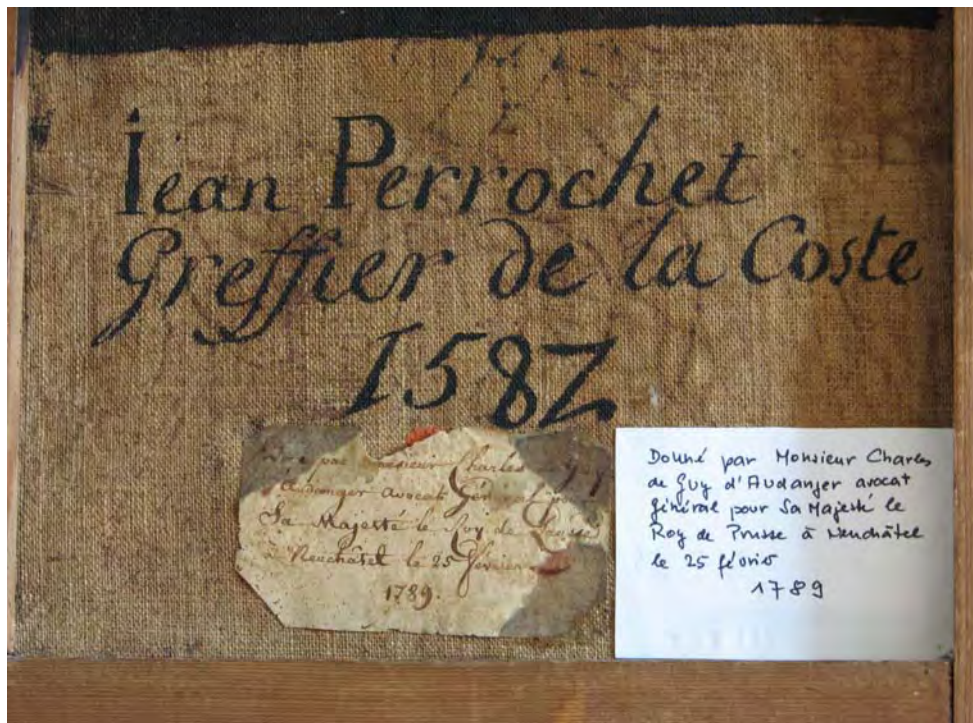 Iean Perrochet
Greffier de la Coste
1582
par Monsieur Charles de Guy
d'Audanger avocat Général pour
Sa Majesté le Roy de Prusse
à Neuchâtel le 25 février
1789.
Donné par Monsieur Charles
de Guy d'Audanger avocat
général pour Sa Majesté le
Roy de Prusse à Neuchâtel
le 25 février
1789